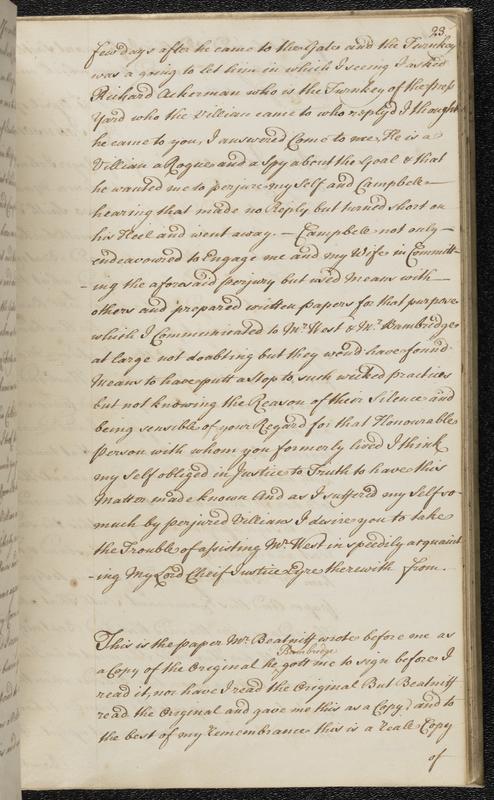 23.
few days after he came to the Gate and the Turnkey
was a going to let him in which I seeing I asked
Richard Ackerman who is the Turnkey of the Press
Yard who the Villian came to who reply'd I thought
he came to you, I answered Come to me, He is a
Villian a Rogue and a Spy about the Goal & that
he wanted me to perjure my Self and Campbele
hearing that made no Reply but turned short on
his Heel and went away. — Campbele not only —
endeavoured to Engage me and my Wife in Committ-
-ing the aforesaid perjury but used Means with —
others and prepared written papers for that purpose
which I Communicated to Mr. West & Mr. Bambridge
at large not doubting but they wou'd have found
Means to have putt a Stop to such wicked practices
but not knowing the Reason of their Silence and
being sensible of your Regard for that Honourable
person with whom you formerly lived I think
my Self obliged in Justice to Truth to have this
Matter made known And as I suffered my Self so
much by perjured Villians I desire you to take
the Trouble of assisting Mr. West in speedily acquaint
-ing My Lord Cheif Justice Eyre therewith from.
This is the paper Mr. Beatniff wrote before me as
Bambridge
a Copy of the Original he gott me to sign before I
read it, nor have I read the Original But Beatniff
read the Original and gave me this as a Copy, and to
the best of my Remembrance this is a reale Copy
of